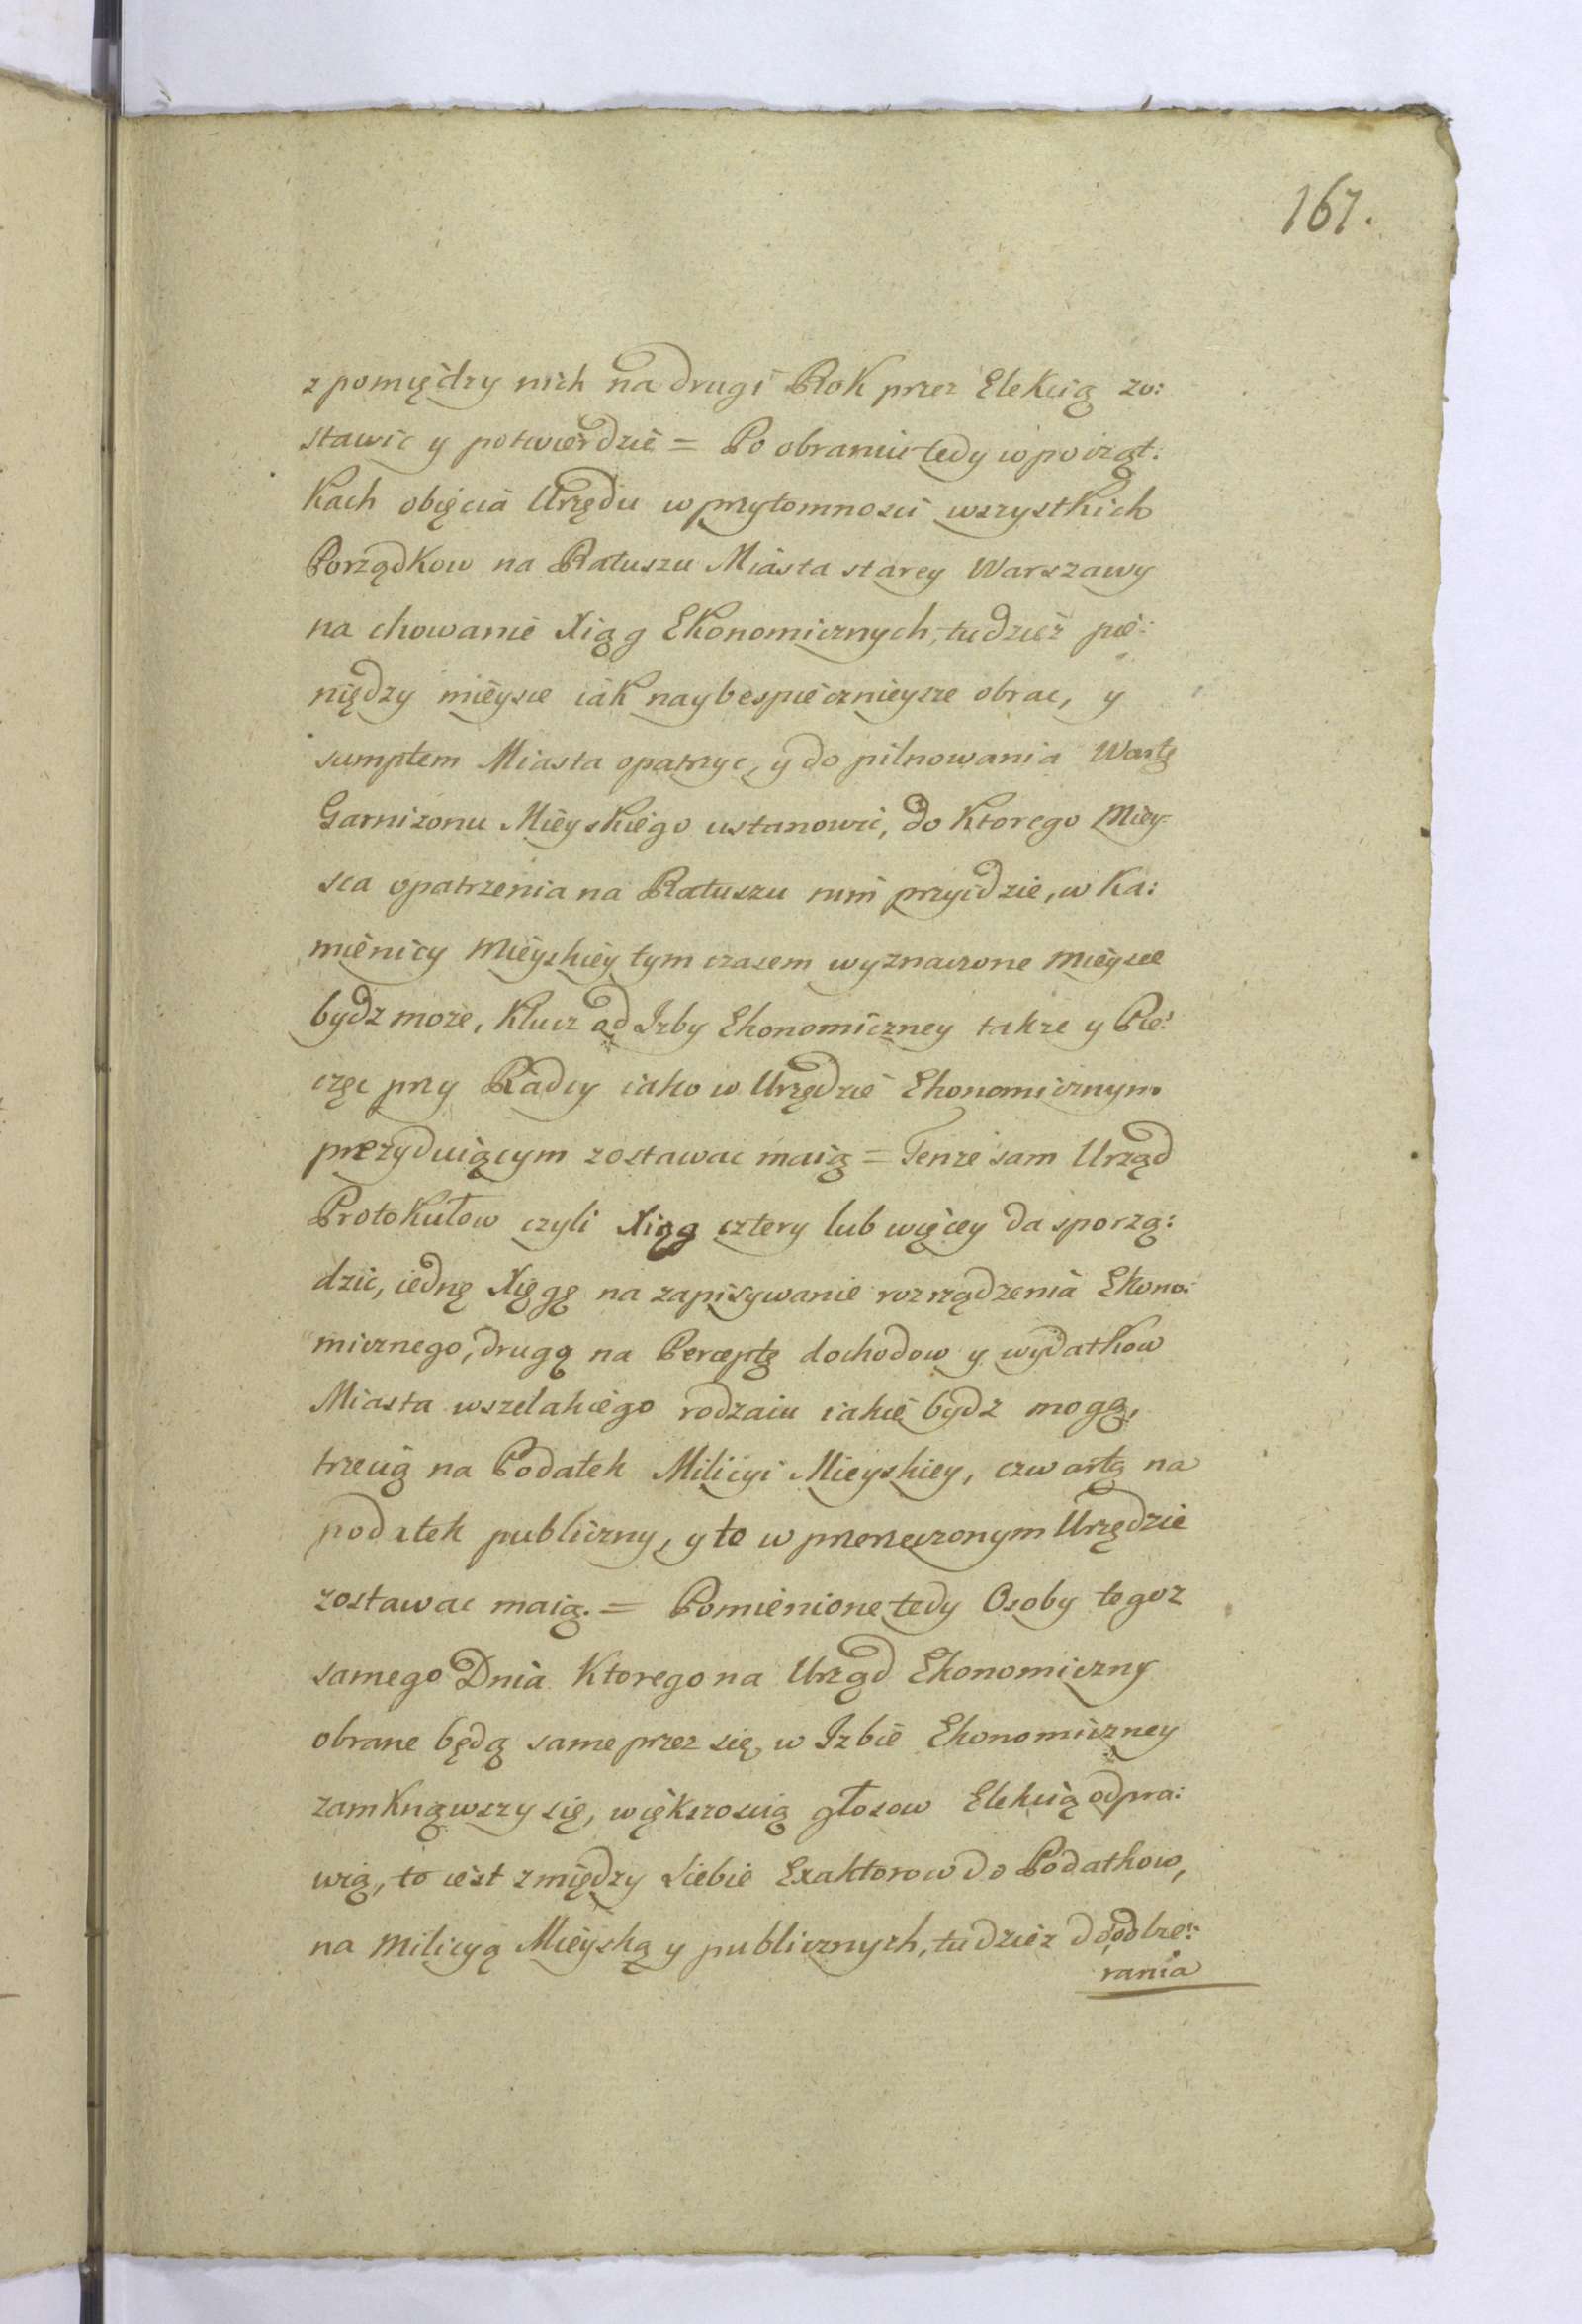 167.
z pomiędzy nich na drugi Rok przez Elekcią zo:
stawic y potwierdzić = Po obraniu tedy w począt:
kach obięcia Urzędu w przytomnosci wszystkich
Porządkow na Ratuszu Miasta starey Warszawy
na chowanie Xiąg Ekonomicznych, tudzież pie:
niędzy mieysce iak naybespiecznieysze obrac, y
sumptem Miasta opatrzyc, y do pilnowania Wartę
Garnizonu Mieyskiego ustanowić, do ktorego Miey:
sca opatrzenia na Ratuszu nim przyidzie, w Ka:
mienicy Mieyskiey tym czasem wyznaczone mieysce
bydz może, Klucz od Izby Ekonomiczney także y Pie:
częc przy Radcy iako w Urzędzie Ekonomicznym
prezyduiącym zostawac maią = Tenże sam Urząd
Protokułow czyli Xiąg cztery lub więcey da sporzą:
dzic, iednę Xięgę na zapisywanie rozrządzenia Ekono:
micznego, drugą na Perceptę dochodow y wydatkow
Miasta wszelakiego rodzaiu iakie bydz mogą,
trzecią na Podatek Milicyi Mieyskiey, czwartą na
podatek publiczny, y to w przerzeczonym Urzędzie
zostawac maią. = Pomienione tedy Osoby tegoz
samego Dnia ktorego na Urząd Ekonomiczny
obrane będą same przez się w Izbie Ekonomiczney
zamknąwszy się, większoscią głosow Elekcią odpra:
wią, to iest z między siebie Exaktorow do Podatkow,
na Milicyą Mieyską y publicznych, tudziez do odbie:
rania